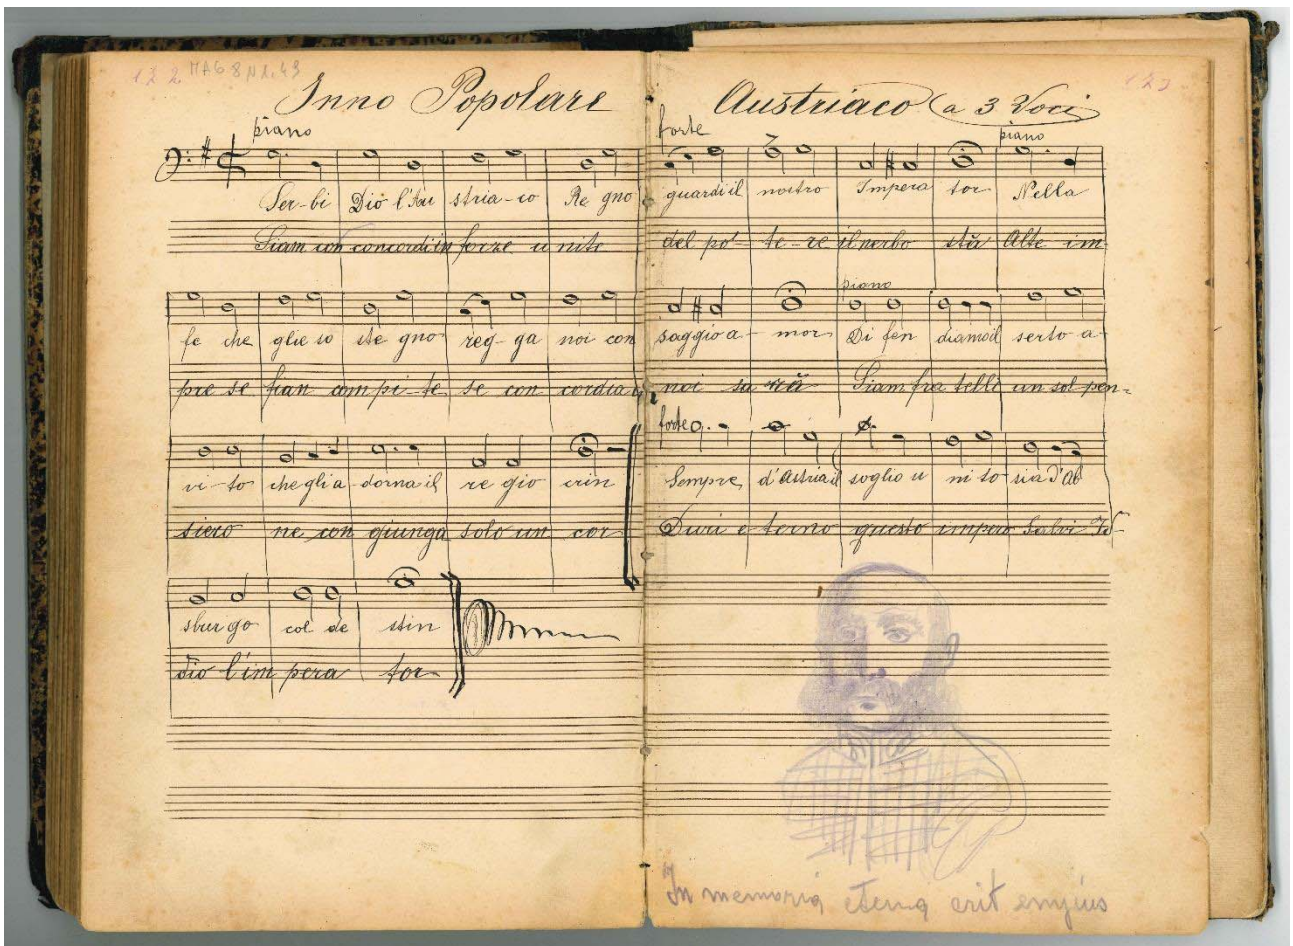 122 MAG 8 N 1.43
123
Inno Popolare Austriaco (a 3 Voci)
piano forte piano
Ser-bi Dio l'Au stria-co Re gno guardi il nostro Impera tor Nella
Siam con concordi in forze u nite del po-te-re il nerbo stà Alte im-
piano
fe che glie so ste gno reg-ga noi con saggio a-mor Di fen diamo il serto a-
pre se fian com pi-te se con cordia in noi sa rà Siam fra telli un sol pen=
forte
vi-to che gli a-dorna il re gio crin Sempre d'Austria il soglio u ni to sia d'Ab
siero ne con giunga solo un cor Duri e terno questo impero Salvi Id-
sbur go col de stin
dio l'im pera tor
In memoria eterna erit emjius